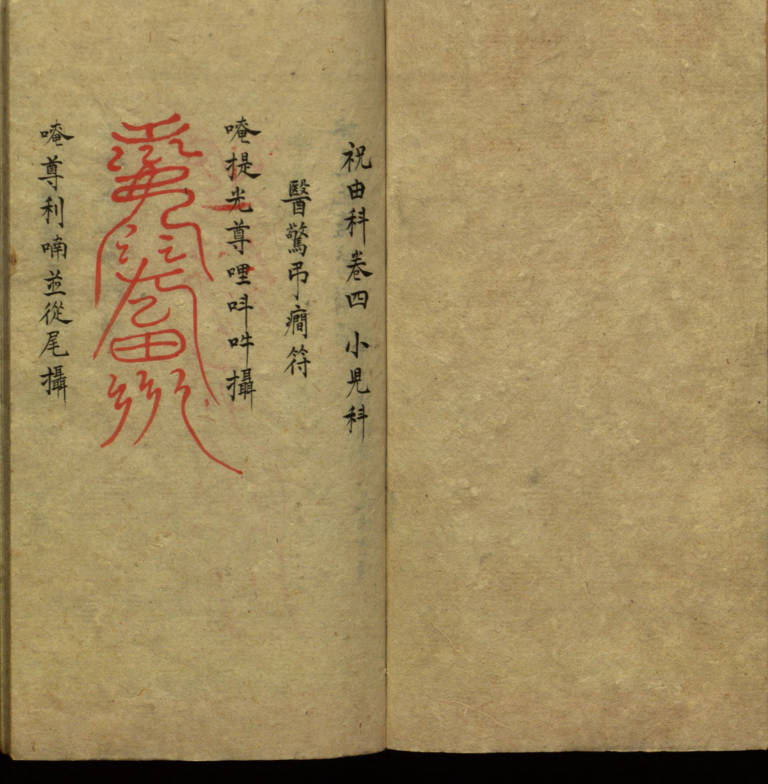 祝由科卷四 小兒科
醫驚弔癇符
唵提光尊哩呌吽攝
唵尊利喃並從尾攝